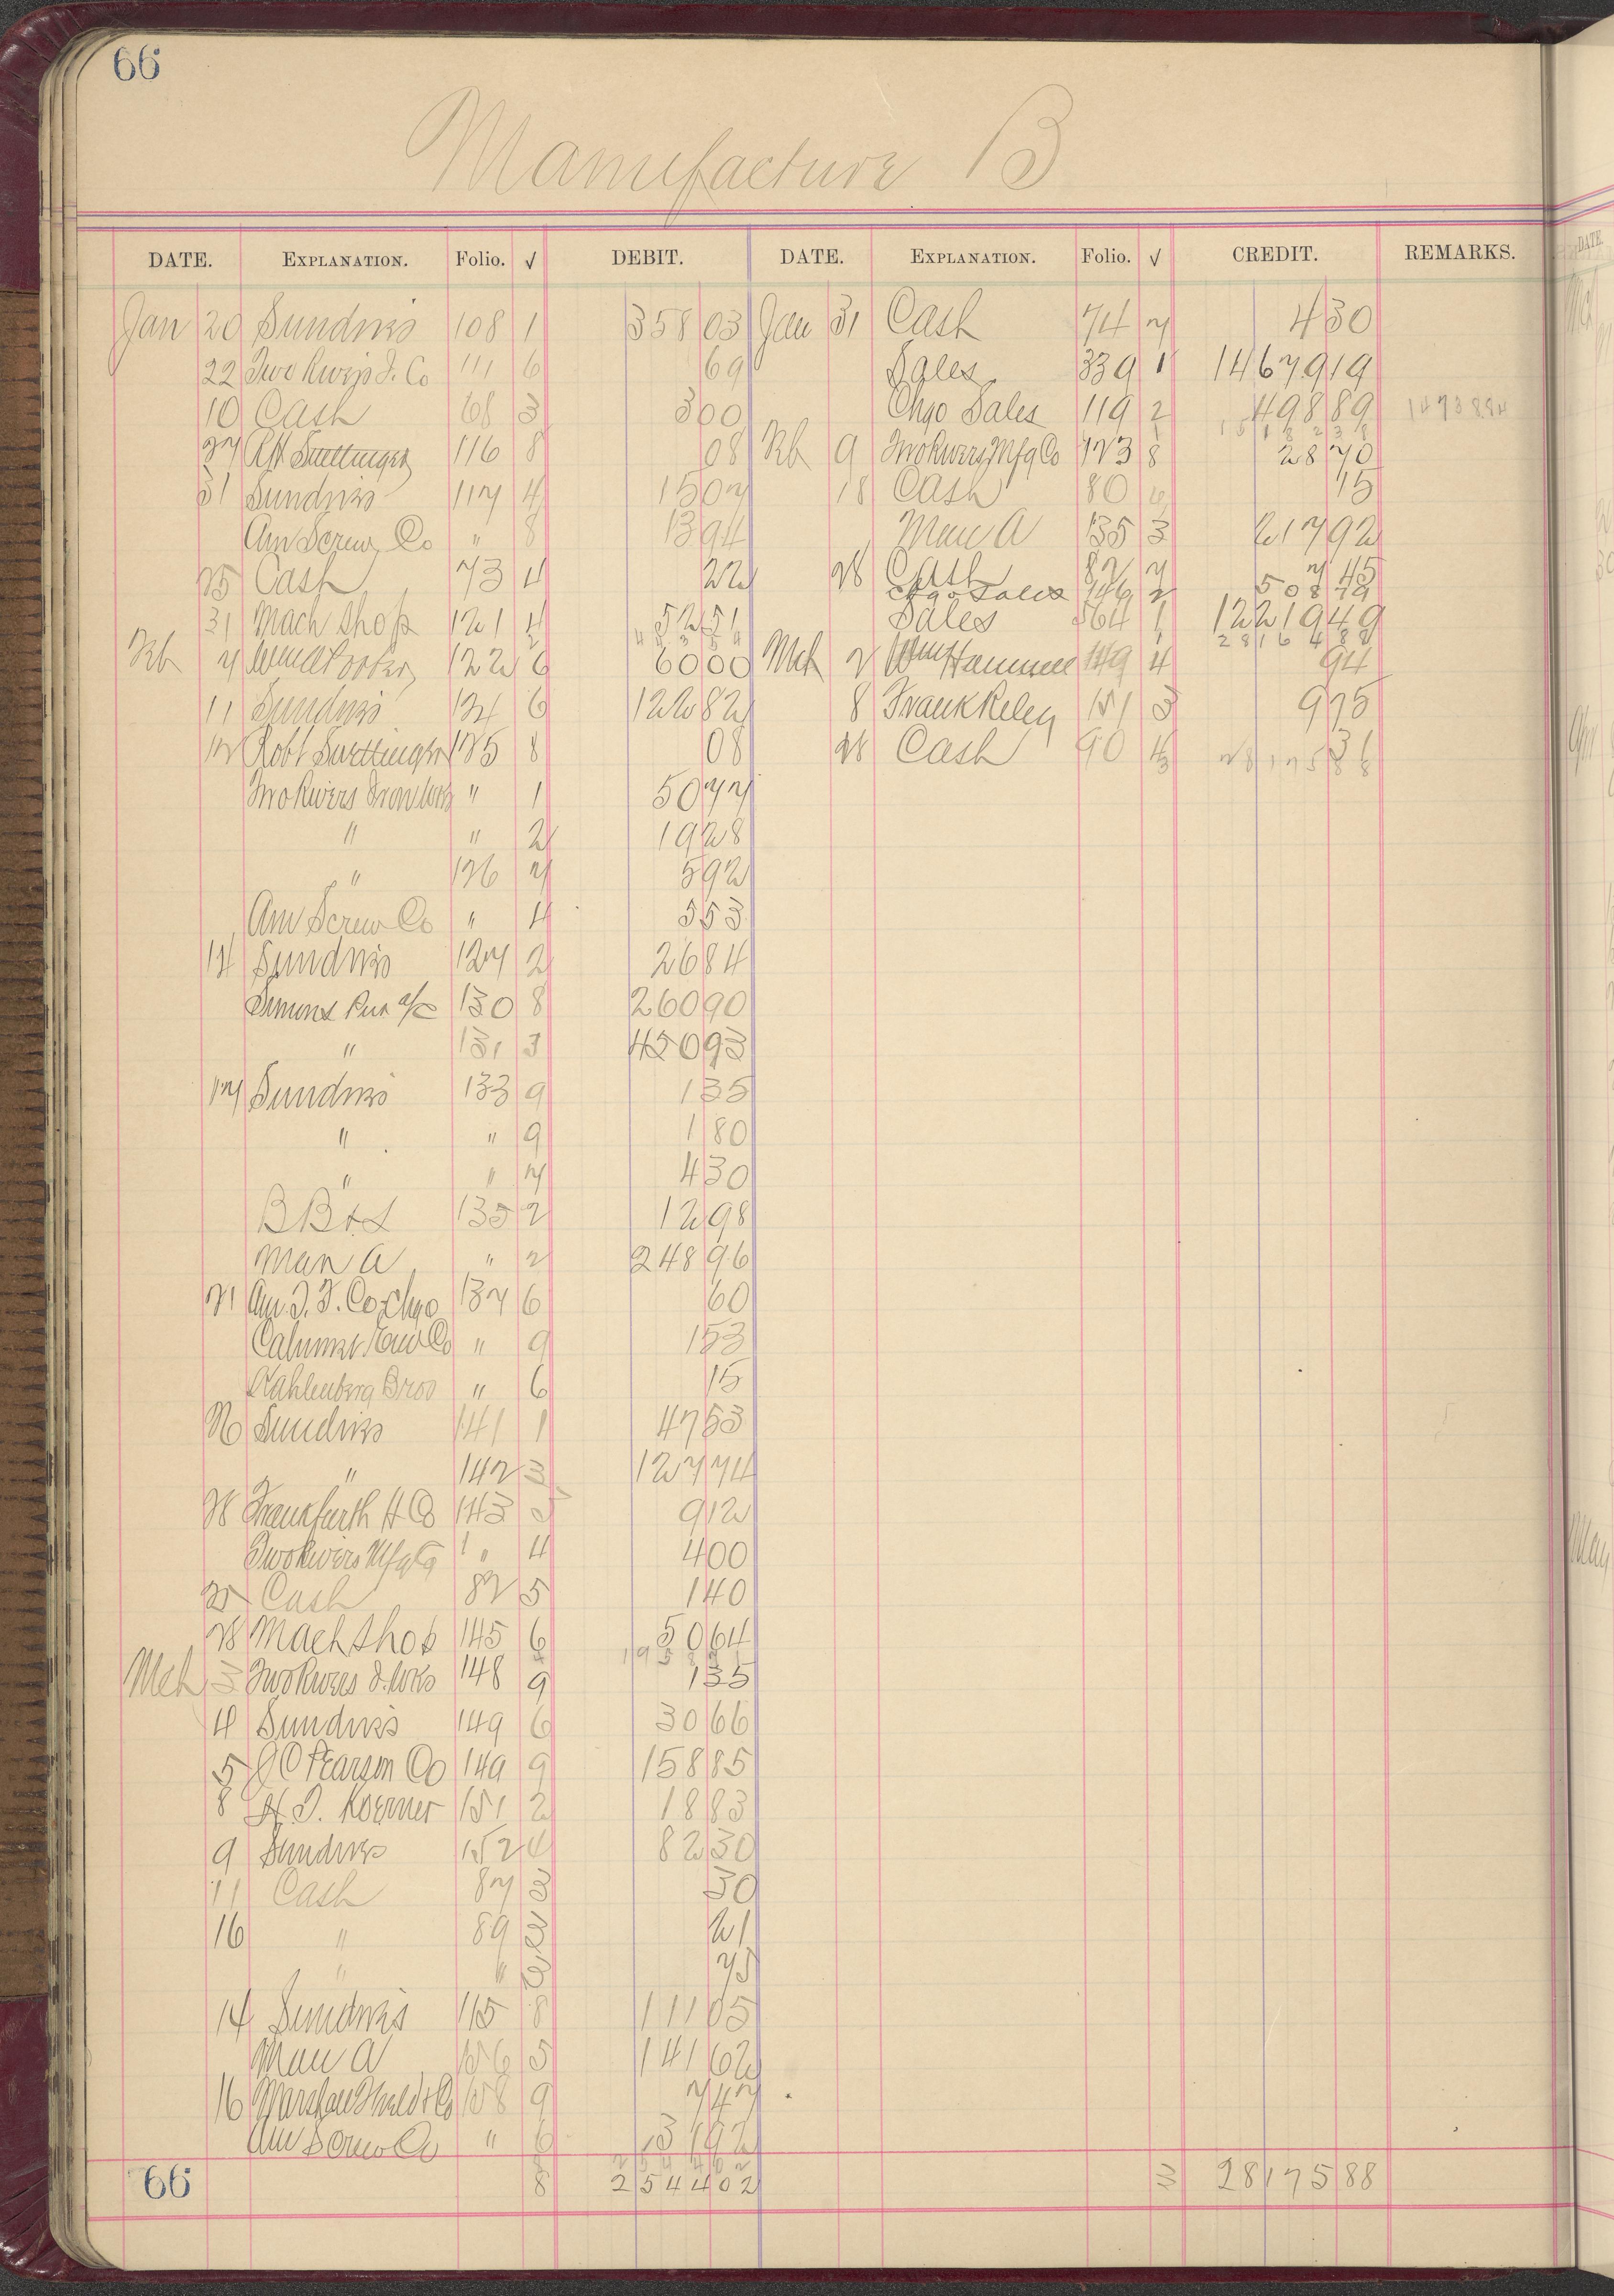 66
Manufacture B
DATE. EXPLANATION. Folio. √ DEBIT. DATE. EXPLANATION. Folio. √ CREDIT. REMARKS.
Jan 20 Sundries 108 1 358 03 Jan 31 Cash 74 7 4 30
22 Two Rivers I. Co 111 6 69 Sales 339 1 14679 19
10 Cash 68 3 3 00 Chgo Sales 119 2 498 89 1493884
27 116 8 08 Feb 9 Two Rivers Mfg Co 123 8 28 70
31 Sundries 117 4 15 07 18 Cash 80 6 15
Am Screw Co " 8 13 94 Man A 135 3 217 92
25 Cash 73 4 22 28 Cash 82 7 7 45
Chgo Sales 146 2 508 79
31 Mach Shop 121 4 52 51 Sales 364 1 12219 49
Feb 7 122 6 60 00 Mch 2 Wm Hammel 149 4 94
11 Sundries 124 6 122 82 8 Frank Riley 151 3 9 75
12 Robt Suettinger 125 8 08 28 Cash 90 4 31
2817588
Two Rivers Iron Wks " 1 50 77
" " 2 19 28
" 126 7 5 92
Am Screw Co " 4 5 53
14 Sundries 127 2 26 84
Pur a/c 130 8 260 90
" 131 3 450 93
17 Sundries 133 9 1 35
" " 9 1 80
" " 7 4 30
BB&S 135 2 12 98
Man A " 2 248 96
21 Am. Co Chgo 137 6 60
Calumet Co " 9 1 53
Kahlenberg Bros " 6 15
26 Sundries 141 1 47 53
" 142 3 127 74
28 Frankfurth H Co 143 9 12
Two Rivers Mfg Co " 4 4 00
25 Cash 82 5 1 40
28 Mach Shop 145 6 50 64
Mch 3 Two Rivers I. Wks 148 9 1 35
4 Sundries 149 6 30 66
5 J C Pearson Co 149 9 158 85
8 Koerner 151 2 18 83
9 Sundries 152 4 82 30
11 Cash 87 3 30
16 " 89 3 21
" " 75
14 Sundries 115 8 111 05
Man A 156 5 141 62
16 Marshall Field & Co 158 9 7 47
Am Screw Co " 6 31 92
66 8 2544 02 3 28175 88